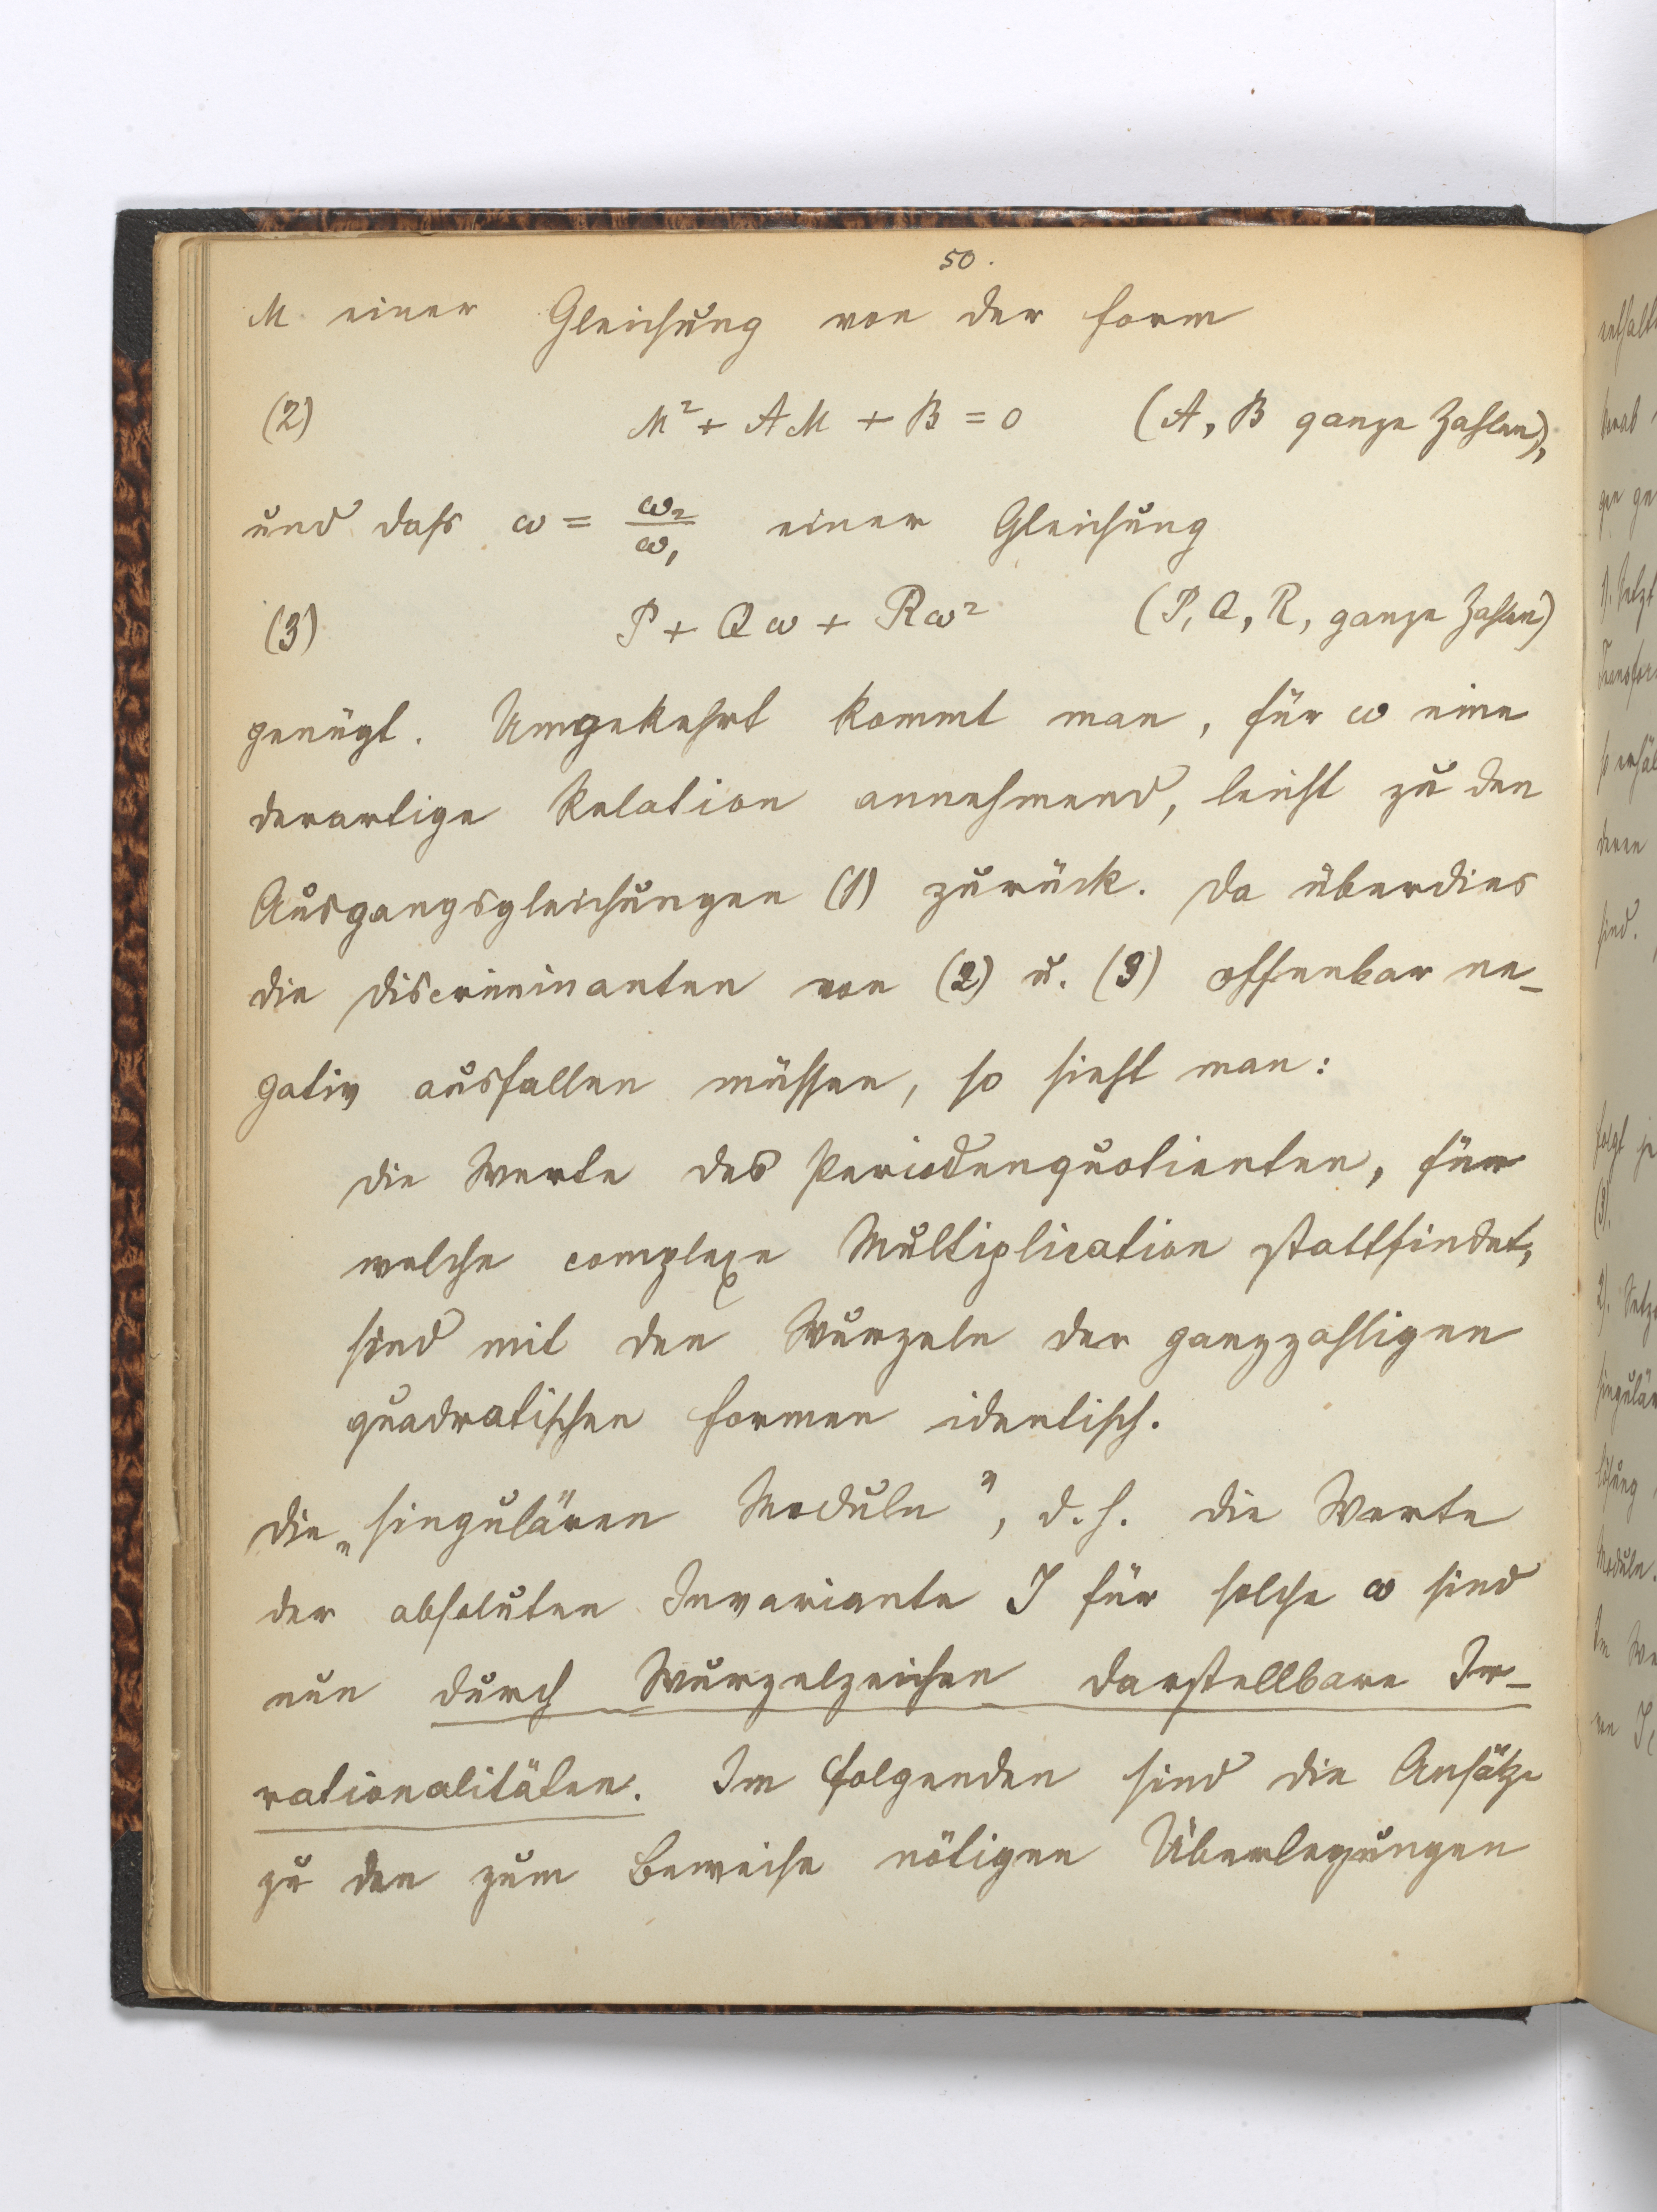 50.
M einer Gleichung von der Form
(2) M² + AM + B = 0 (A, B ganze Zahlen),
und dass ω = ω₂/ω₁ einer Gleichung
(3) P + Qω + Rω² (P, Q, R, ganze Zahlen)
genügt. Umgekehrt kommt man, für ω eine
derartige Relation annehmend, leicht zu den
Ausgangsgleichungen (1) zurück. Da überdies
die Discriminanten von (2) u. (3) offenbar ne-
gativ ausfallen müssen, so sieht man:
Die Werte des Periodenquotienten, für
welche complexe Multiplication stattfindet,
sind mit den Wurzeln der ganzzahligen
quadratischen Formen identisch.
Die „singulären Moduln", d. h. die Werte
der absoluten Invariante J für solche ω sind
nun durch Wurzelzeichen darstellbare Ir-
rationalitäten. Im Folgenden sind die Ansätze
zu den zum Beweise nötigen Überlegungen